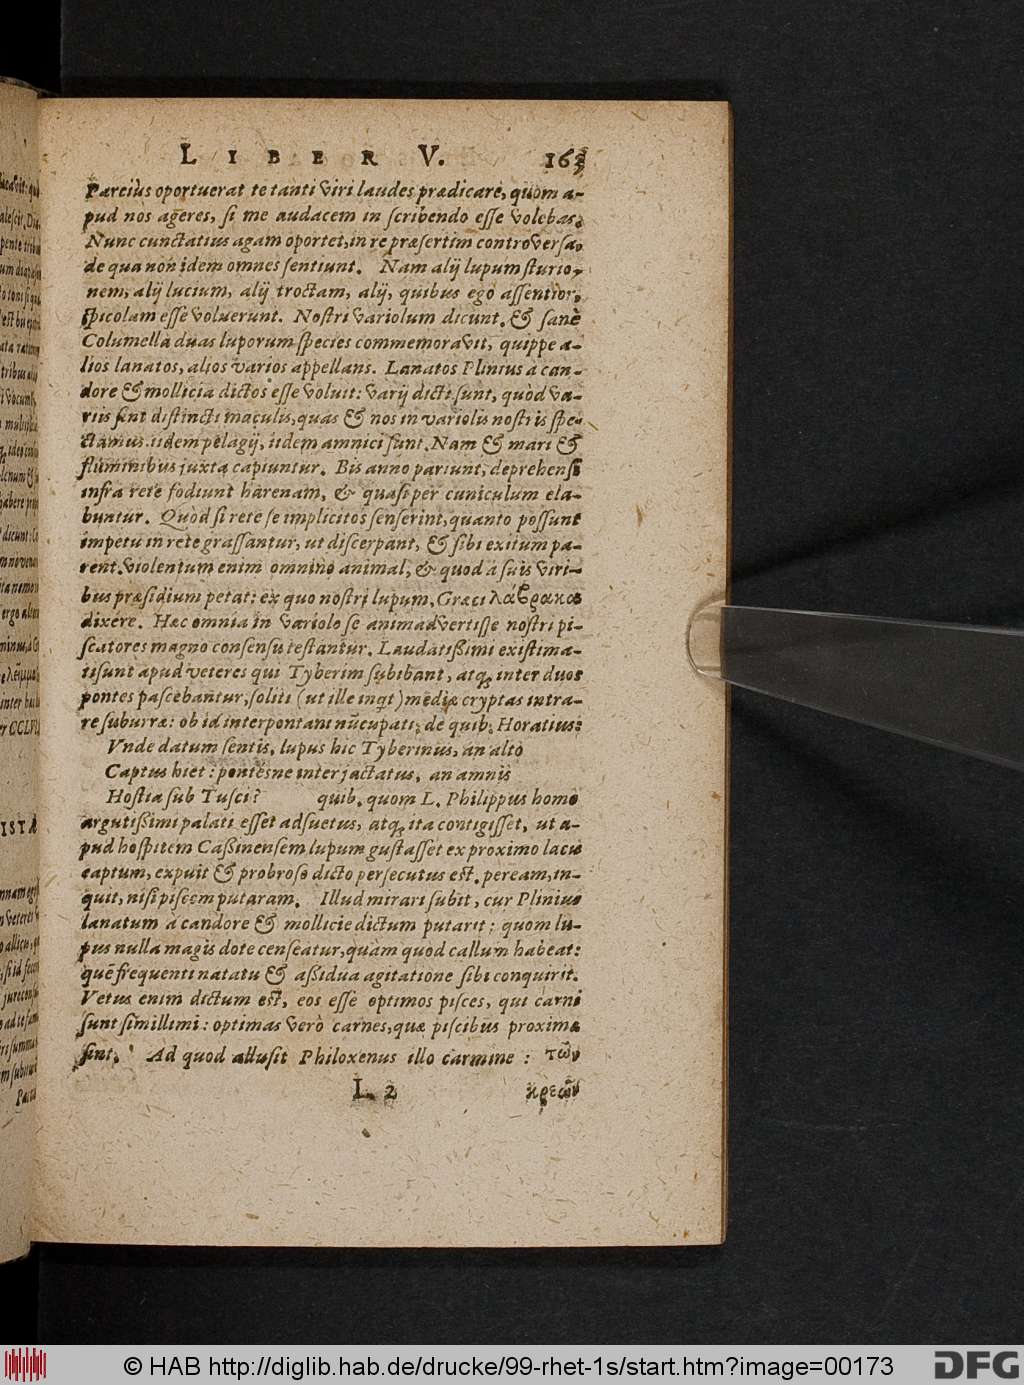 LIBER V. 163
Parciùs oportuerat te tanti viri laudes prædicare, quùm a-
pud nos ageres, si me audacem in scribendo esse volebas.
Nunc cunctatius agam oportet, in re præsertim controversa,
de qua non idem omnes sentiunt. Nam alij lupum sturio-
nem, alij lucium, alij troctam, alij, quibus ego assentior,
spicolam esse voluerunt. Nostri variolum dicunt. & sanè
Columella duas luporum species commemoravit, quippe a-
lios lanatos, alios varios appellans. Lanatos Plinius à can-
dore & mollicia dictos esse voluit: varij dicti sunt, quòd va-
riis sint distincti maculis, quas & nos in variolis nostris spe-
ctamus. iidem pelagij, iidem amnici sunt. Nam & mari &
fluminibus juxta capiuntur. Bis anno pariunt, deprehensi
infra rete fodiunt harenam, & quasi per cuniculum ela-
buntur. Quòd si rete se implicitos senserint, quanto possunt
impetu in rete grassantur, ut discerpant, & sibi exitum pa-
rent. violentum enim omnino animal, & quod à suis viri-
bus præsidium petat: ex quo nostri lupum, Græci λάβρακα
dixere. Hæc omnia in variolo se animadvertisse nostri pi-
scatores magno consensu testantur. Laudatißimi existima-
ti sunt apud veteres qui Tyberim subibant, atq; inter duos
pontes pascebantur, soliti (ut ille inqt) mediæ cryptas intra-
re suburræ: ob id interpontani nũcupati, de quib. Horatius:
Vnde datum sentis, lupus hic Tyberinus, an alto
Captus hiet: pontesne inter jactatus, an amnis
Hostia sub Tusci? quib. quom L. Philippus homo
argutißimi palati esset adsuetus, atq; ita contigisset, ut a-
pud hospitem Caßinensem lupum gustasset ex proximo lacu
captum, expuit & probroso dicto persecutus est. peream, in-
quit, nisi piscem putaram. Illud mirari subit, cur Plinius
lanatum à candore & mollicie dictum putarit: quom lu-
pus nulla magis dote censeatur, quàm quod callum habeat:
quẽ frequenti natatu & aßidua agitatione sibi conquirit.
Vetus enim dictum est, eos esse optimos pisces, qui carni
sunt simillimi: optimas verò carnes, quæ piscibus proximæ
sint. Ad quod allusit Philoxenus illo carmine: τῶν
L 2 κρεῶν
© HAB http://diglib.hab.de/drucke/99-rhet-1s/start.htm?image=00173
DFG